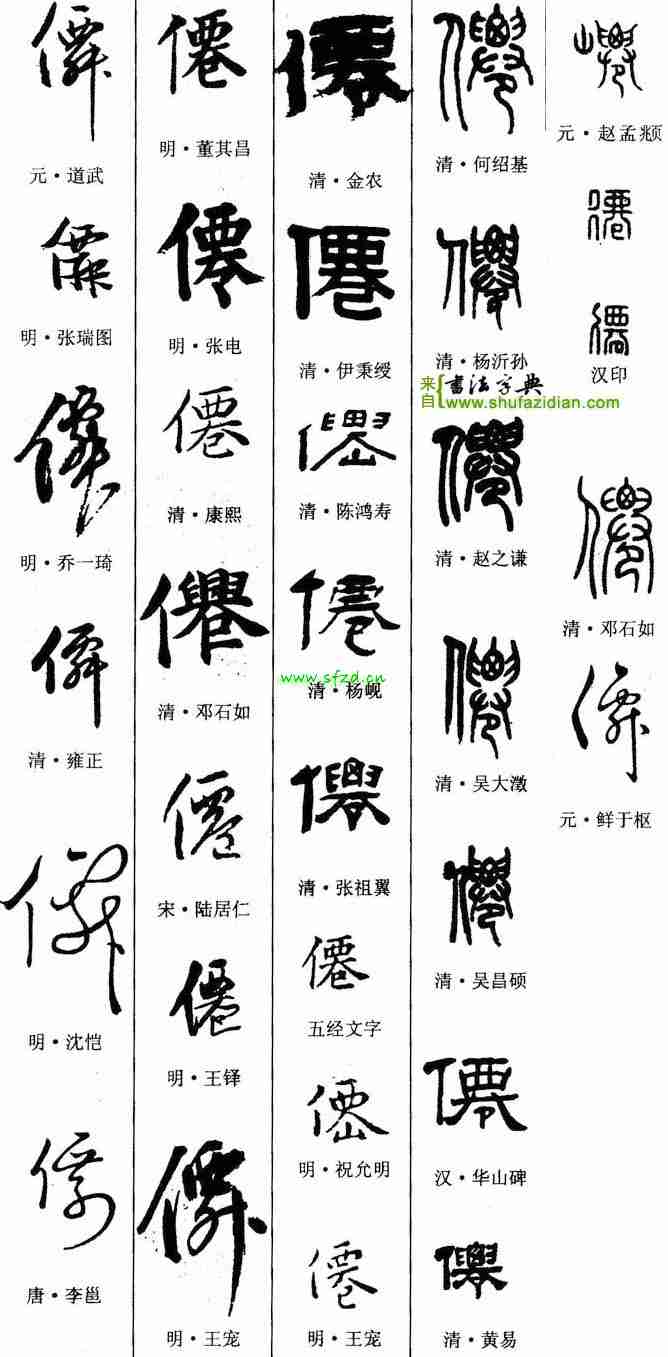 僊
元·道武
僊
明·张瑞图
僊
明·乔一琦
僊
清·雍正
僊
明·沈恺
僊
唐·李邕
僊
明·董其昌
僊
明·张电
僊
清·康熙
僊
清·邓石如
僊
宋·陆居仁
僊
明·王铎
僊
明·王宠
僊
清·金农
僊
清·伊秉绶
僊
清·陈鸿寿
僊
www.sfzd.cn
清·杨岘
僊
清·张祖翼
僊
五经文字
僊
明·祝允明
僊
明·王宠
僊
清·何绍基
僊
清·杨沂孙
来自 书法字典
www.shufazidian.com
僊
清·赵之谦
僊
清·吴大澂
僊
清·吴昌硕
僊
汉·华山碑
僊
清·黄易
僊
元·赵孟𫖯
僊
僊
汉印
僊
清·邓石如
僊
元·鲜于枢